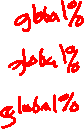 global%
global%
global%